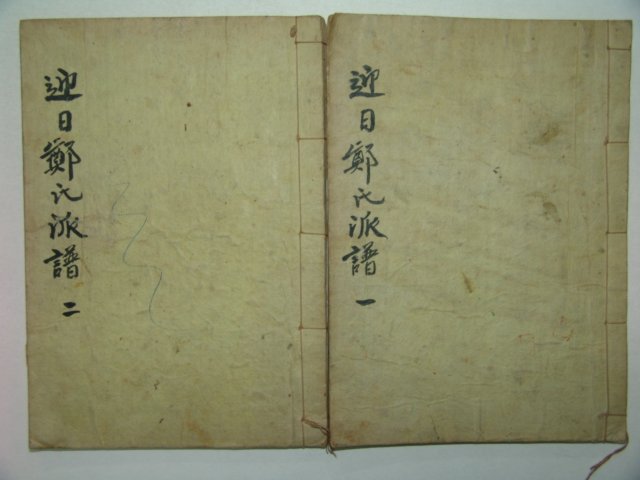 迎日鄭氏派譜 一
迎日鄭氏派譜 二